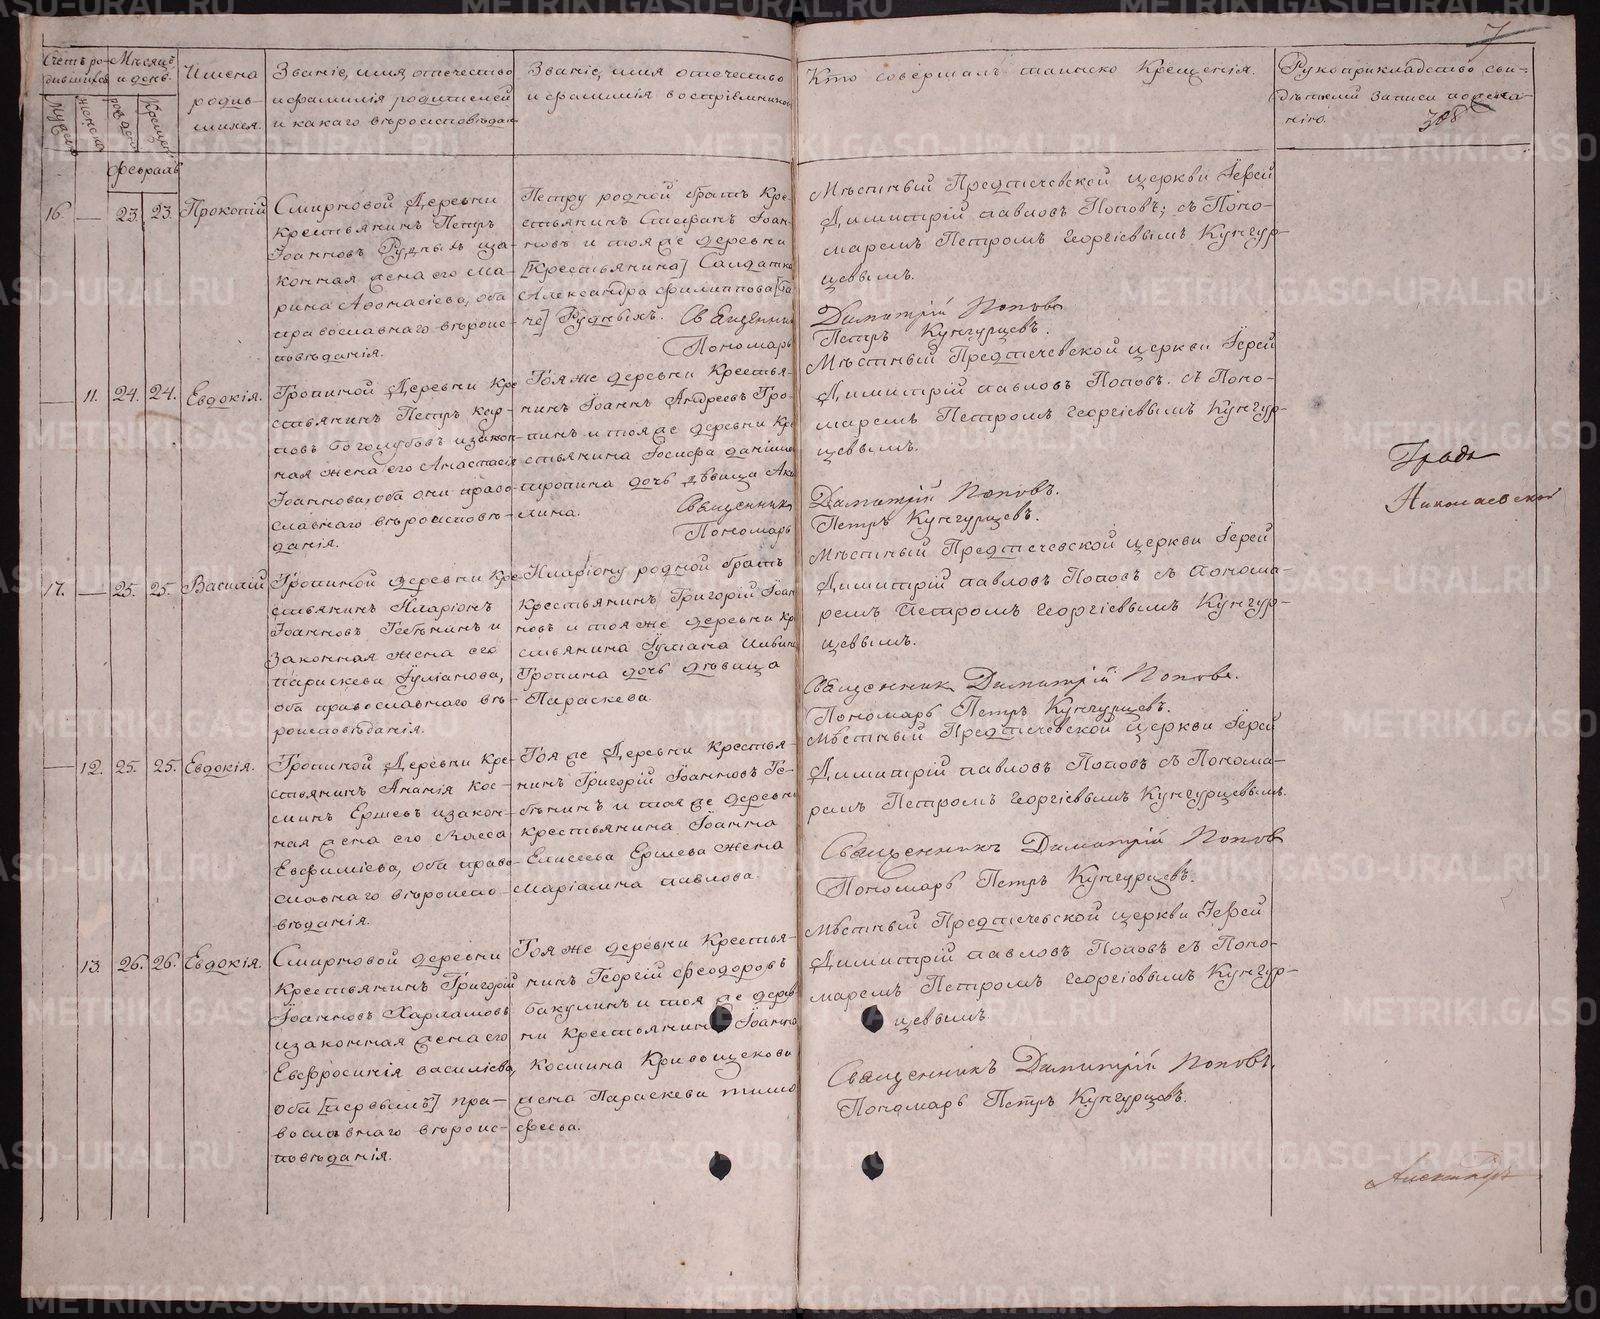 7
308
Счетъ ро-
дившихся
Мѣсяцъ
и день.
Имена
родив-
шихся.
Званіе, имя, отечество
и фамилія родителей
и какаго вѣроисповѣдан
Званіе, имя отечество
и фамилія воспріѣмников
Кто совершалъ таинско Крещенія.
Рукоприкладство сви-
дѣтелей записи
нію.
Февраль
16. — 23. 23. Прокопій
Смирновой Деревни
Крестьянинъ Петръ
Іоанновъ Рудныхъ иза-
конная жена его Ма-
рина Афонасіева, оба
православнаго вѣроис-
повѣданія.
Петру родной братъ Кре-
стьянинъ Стефанъ Іоан-
новъ и тоя же деревни
[Крестьянина] Салдатка
Александра Филиппова
Рудныхъ. Священник
Пономарь
Мѣстный Предтечевской церкви Іерей
Димитрій павловъ Поповъ; съ Поно-
маремъ Петромъ Георгіевымъ Кунгур-
цевымъ.
Димитрій Поповъ
Петръ Кунгурцевъ.
— 11. 24. 24. Евдокія.
Тропиной Деревни Кре
стьянинъ Петръ Кар-
повъ Боголубовъ изакон
ная жена его Анастасія
Іоаннова, оба они право-
славнаго вѣроисповѣ-
данія.
Тоя же деревни Крестья-
нинъ Іоаннъ Андреевъ Тро-
пинъ и тоя же деревни Кре
стьянина Іосифа
тропина дочь дѣвица Аки
лина. Священникъ
Пономарь
Мѣстный Предтечевской церкви Іерей
Димитрій павловъ Поповъ. съ Поно-
маремъ Петромъ Георгіевымъ Кунгур-
цевымъ.
Димитрій Поповъ.
Петръ Кунгурцевъ.
17. — 25. 25. Василій
Тропиной деревни Кре-
стьянинъ Иларіонъ
Іоанновъ Гебѣнинъ и
законная жена его
параскева Іуліанова,
оба православнаго вѣ-
роисповѣданія.
Иларіону родной братъ
Крестьянинъ Григорій Іоан
новъ и тоя же деревни Кр
стьянина Іуліана
Тропина дочь дѣвица
Параскева
Мѣстный Предтечевской церкви Іерей
Димитрій павловъ Поповъ съ понома-
ремъ Петромъ Георгіевымъ Кунгур-
цевымъ.
Священникъ Димитрій Поповъ.
Пономарь Петръ Кунгурцевъ.
— 12. 25. 25. Евдокія.
Тропиной Деревни Кре-
стьянинъ Ананія Кос-
минъ Ершевъ изакон-
ная жена его Васса
Евфиміева, оба право-
славнаго вѣроиспо-
вѣданія.
Тоя же Деревни Крестья-
нинъ Григорій Іоанновъ Ге-
бѣнинъ и тоя же деревни
крестьянина Іоанна
Елисеева Ершева жена
Маріамна павлова.
Мѣстный Предтечевской церкви Іерей
Димитрій павловъ Поповъ съ Понома-
ремъ Петромъ Георгіевымъ Кунгурцевымъ.
Священникъ Димитрій Поповъ
Пономарь Петръ Кунгурцевъ.
13. 26. 26. Евдокія.
Смирновой деревни
Крестьянинъ Григорій
Іоанновъ Харламовъ
изаконная жена его
Евфросинія василіева,
оба [первымъ] пра-
вославнаго вѣроис-
повѣданія.
Тоя же деревни Крестья-
нинъ Георгій Феодоровъ
Бакулинъ и тоя же дерев
ни Крестьянина Іоанна
Космина Кривощекова
жена Параскева тимо
феева.
Мѣстный Предтечевской церкви Іерей
Димитрій павловъ Поповъ съ Поно-
маремъ Петромъ Георгіевымъ Кунгур-
цевымъ.
Священникъ Димитрій Поповъ.
Пономарь Петръ Кунгурцовъ.
Градо
Николаевской
METRIKI.GASO-URAL.RU